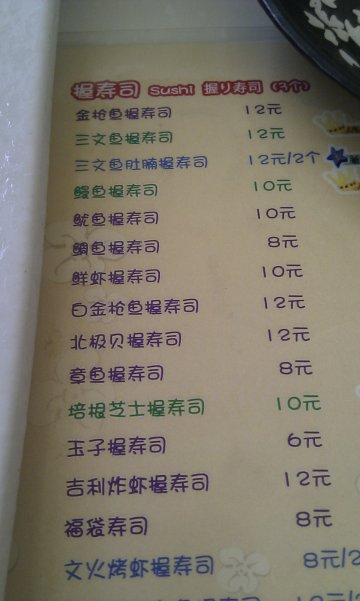 握寿司 Sushi 握り寿司 (3个)
金枪鱼握寿司 12元
三文鱼握寿司 12元
三文鱼肚腩握寿司 12元/2个
鳗鱼握寿司 10元
鱿鱼握寿司 10元
鲷鱼握寿司 8元
鲜虾握寿司 10元
白金枪鱼握寿司 12元
北极贝握寿司 12元
章鱼握寿司 8元
培根芝士握寿司 10元
玉子握寿司 6元
吉利炸虾握寿司 12元
福袋寿司 8元
文火烤虾握寿司 8元/2